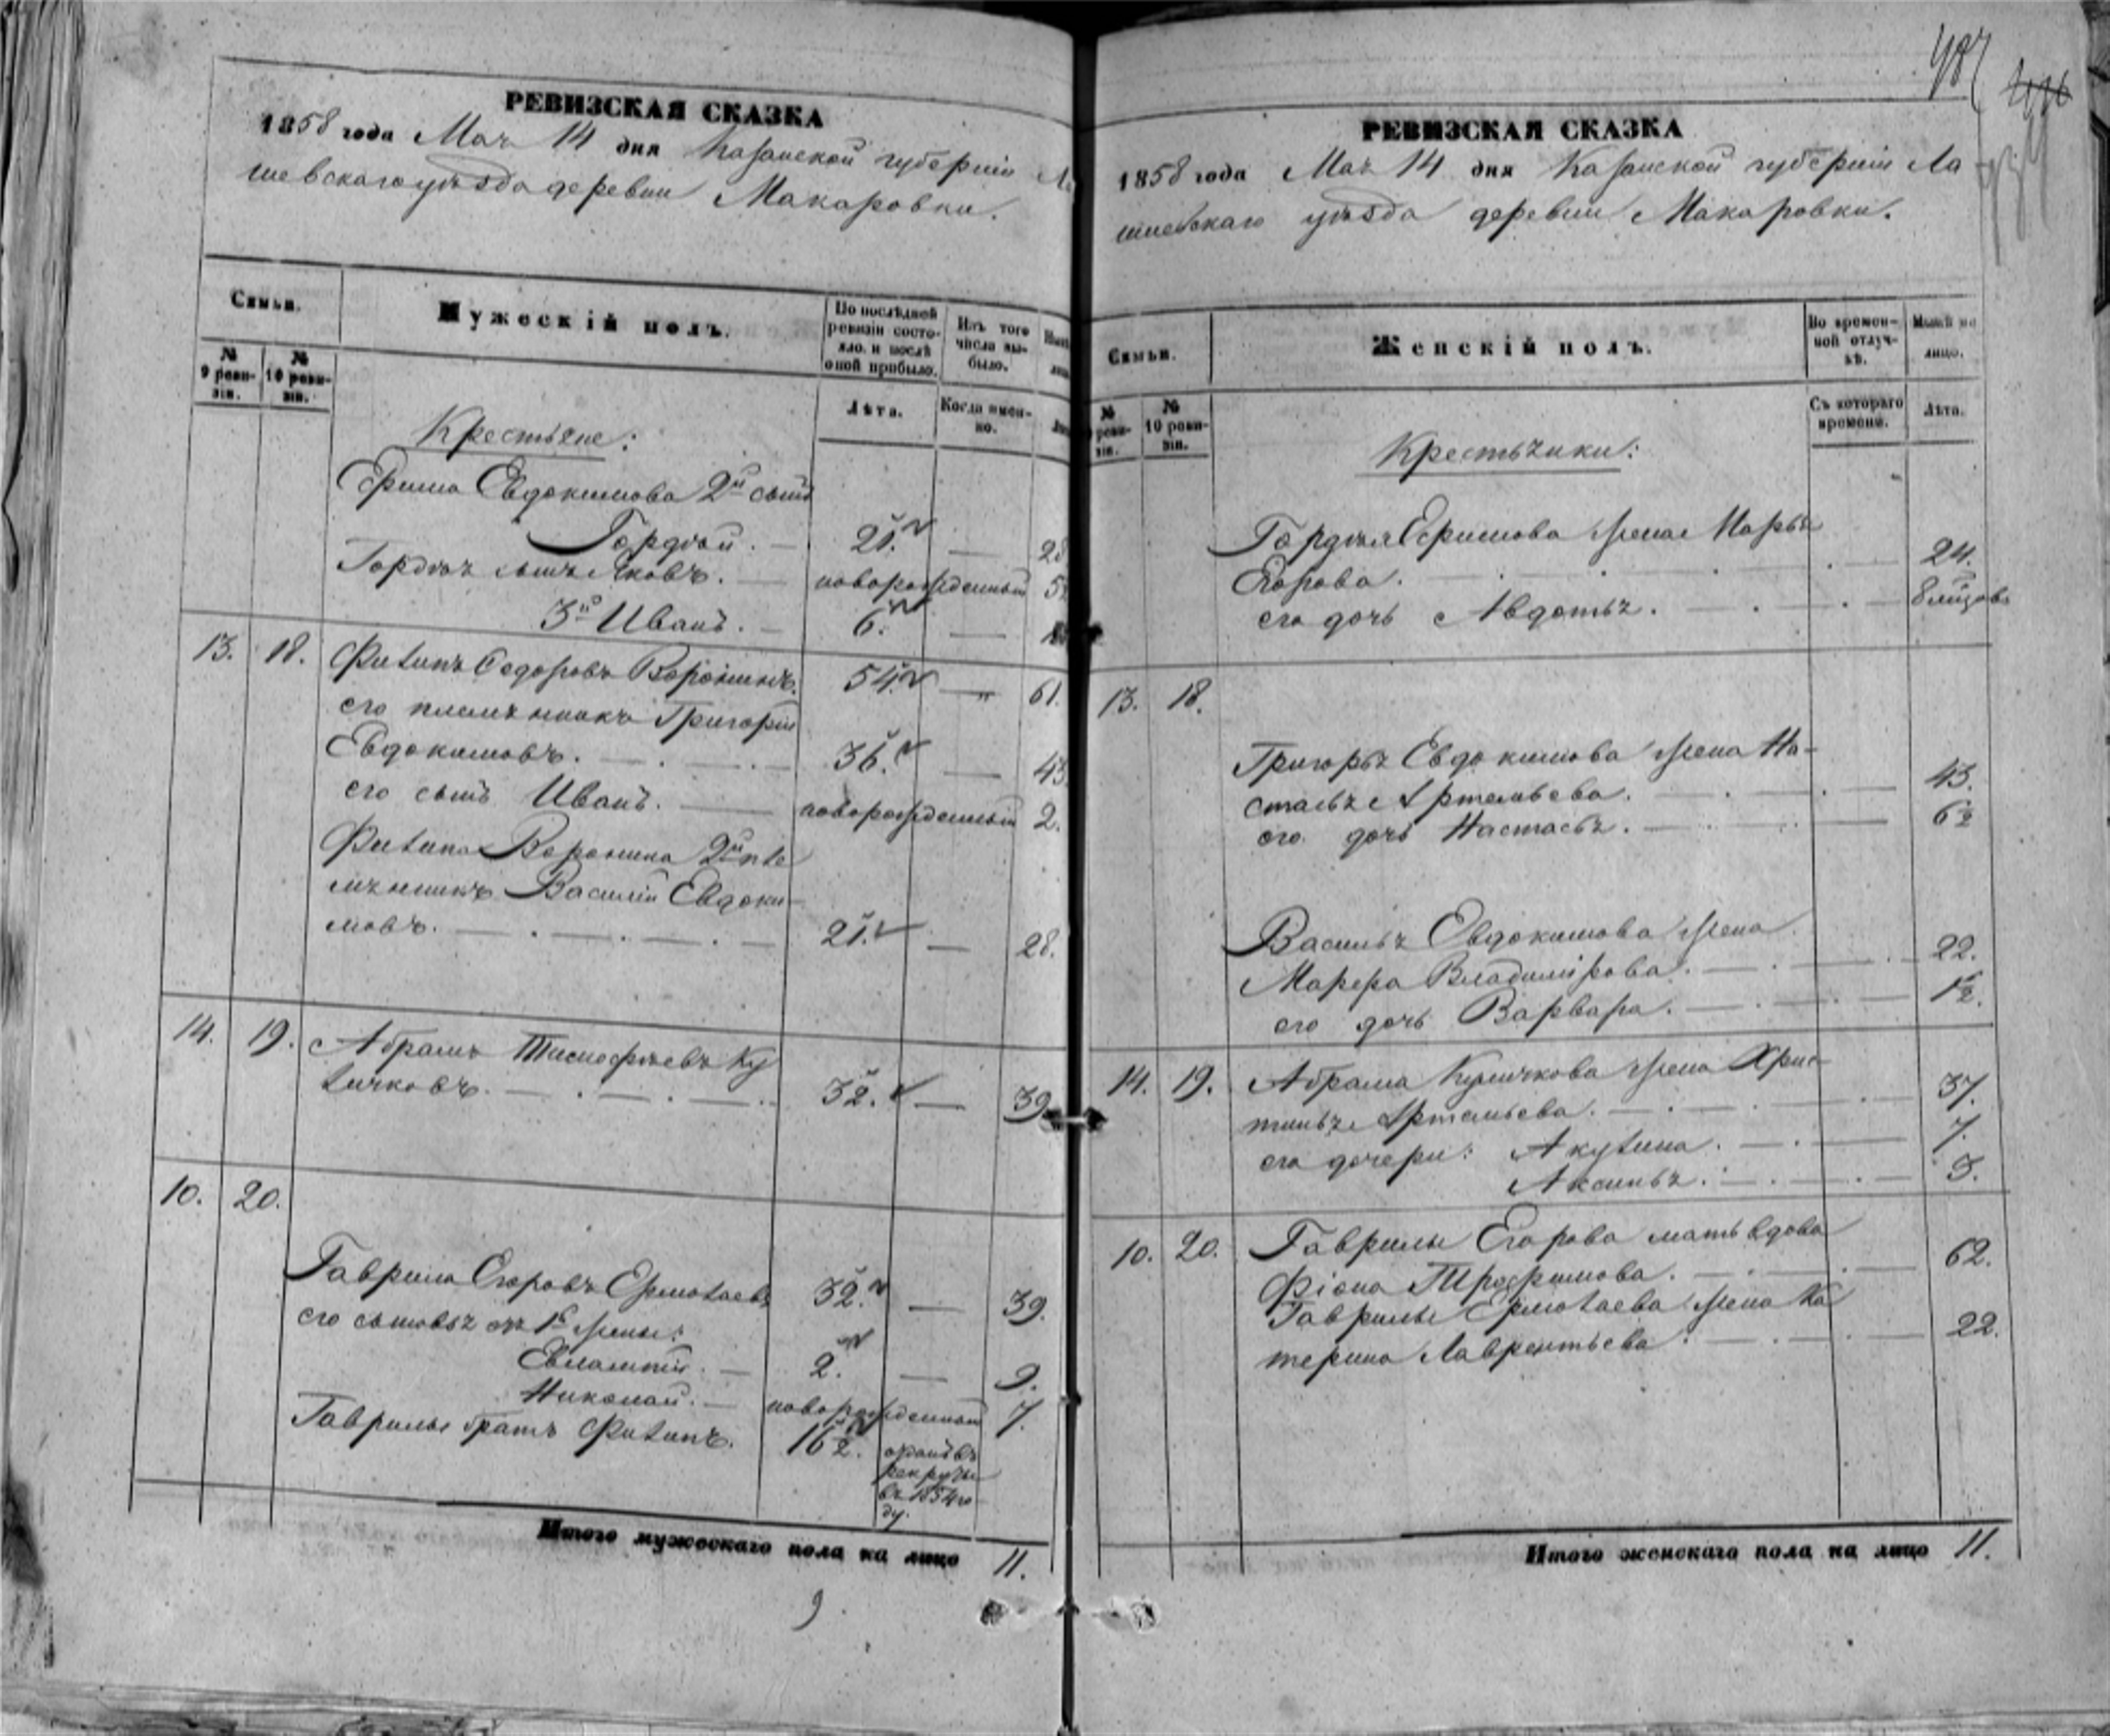 РЕВИЗСКАЯ СКАЗКА
1858 года Мая 14 дня Казанской губерніи Ла
шевскаго уѣзда деревни Макаровки.
Семьи.
Мужескій полъ.
По послѣдней ревизіи состояло. и послѣ оной прибыло.
Изъ того числа выбыло.
№ 9 ревизіи.
№ 10 ревизіи.
Лѣта.
Когда именно.
Крестьяне:
Ефима Евдокимова 2й сынъ
Гордѣй. — 21. — 28
Гордѣя сынъ Яковъ. — новорожденный
3й Иванъ. — 6. —
13. 18. Филипъ Федоровъ Воронинъ. 54. — 61.
его племянникъ Григорій
Евдокимовъ. 36. — 43
его сынъ Иванъ. — новорожденный 2.
Филипа Воронина 2й пле
мянникъ Василій Евдоки-
мовъ. 21. — 28.
14. 19. Абрамъ Тимофѣевъ Ку
личковъ. 32. — 39
10. 20.
Гаврила Егоровъ Ермолаевъ 32. — 39.
его сыновья отъ 1й жены:
Евлампій. — 2. — 9.
Николай. — новорожденный 7.
Гаврилы братъ Филипъ. 16½. отданъ въ
рекруты
въ 1854 го
ду.
Итого мужескаго пола на лицо 11.
9
487
РЕВИЗСКАЯ СКАЗКА
1858 года Мая 14 дня Казанской губерніи Ла
ишевскаго уѣзда деревни Макаровки.
Семьи.
Женскій полъ.
Во временной отлучкѣ.
Нынѣ на лицо.
№ ревизіи.
№ 10 ревизіи.
Съ котораго времени.
Лѣта.
Крестьянки:
Гордѣя Ефимова жена Марья
Егорова. 24.
его дочь Авдотья. 8 мѣсяцовъ
13. 18.
Григорья Евдокимова жена На-
стасья Артемьева. 43.
его дочь Настасья. 6½
Василья Евдокимова жена
Марфа Владимірова. 22.
его дочь Варвара. 1½.
14. 19. Абрама Куличкова жена Хрис-
тинья Артемьева. 37.
его дочери: Акулина. 7.
Аксинья. 3.
10. 20. Гаврилы Егорова мать вдова
Фіона Трофимова. 62.
Гаврилы Ермолаева жена Ка
терина Лаврентьева. 22.
Итого женскаго пола на лицо 11.